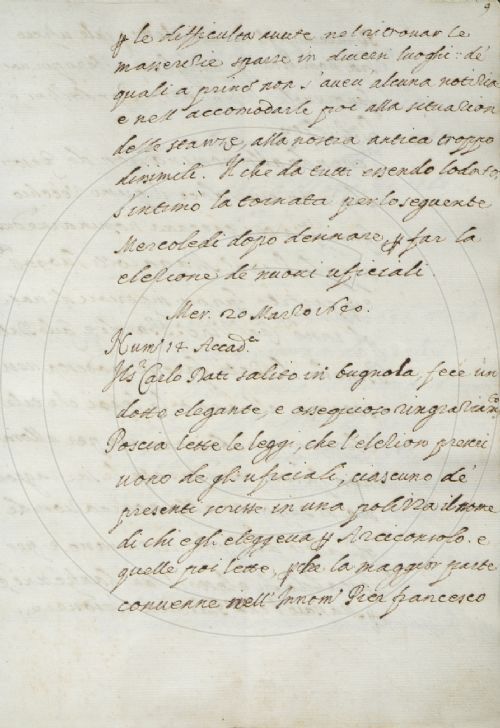 9
p le difficultà avute nel ritrovar le
masserizie sparse in diversi luoghi: de
quali a princ.o non s'aveu alcuna notizia
e nell'accomodarle poi alla situazion
delle stanze, alla nostra antica troppo
dissimili. Il che da tutti essendo lodato,
s'intimò la tornata per lo seguente
Mercoledì dopo desinare, p far la
elezione de' nuovi ufficiali.
Mer. 20 Marzo 1640.
Num.o 14 Accad.ci
Ill.s Carlo Dati salito in bugnola, fece un
dotto elegante, e ossequioso ringraziam.to
Poscia lette le leggi, che l'elezion prescri
vono de gl'uficiali, ciascuno de'
presenti scrisse in una polizza il nome
di chi egli eleggeva p Arciconsolo. e
quelle poi lette, pche la maggior parte
convenne nell'Innom.o Pier francesco